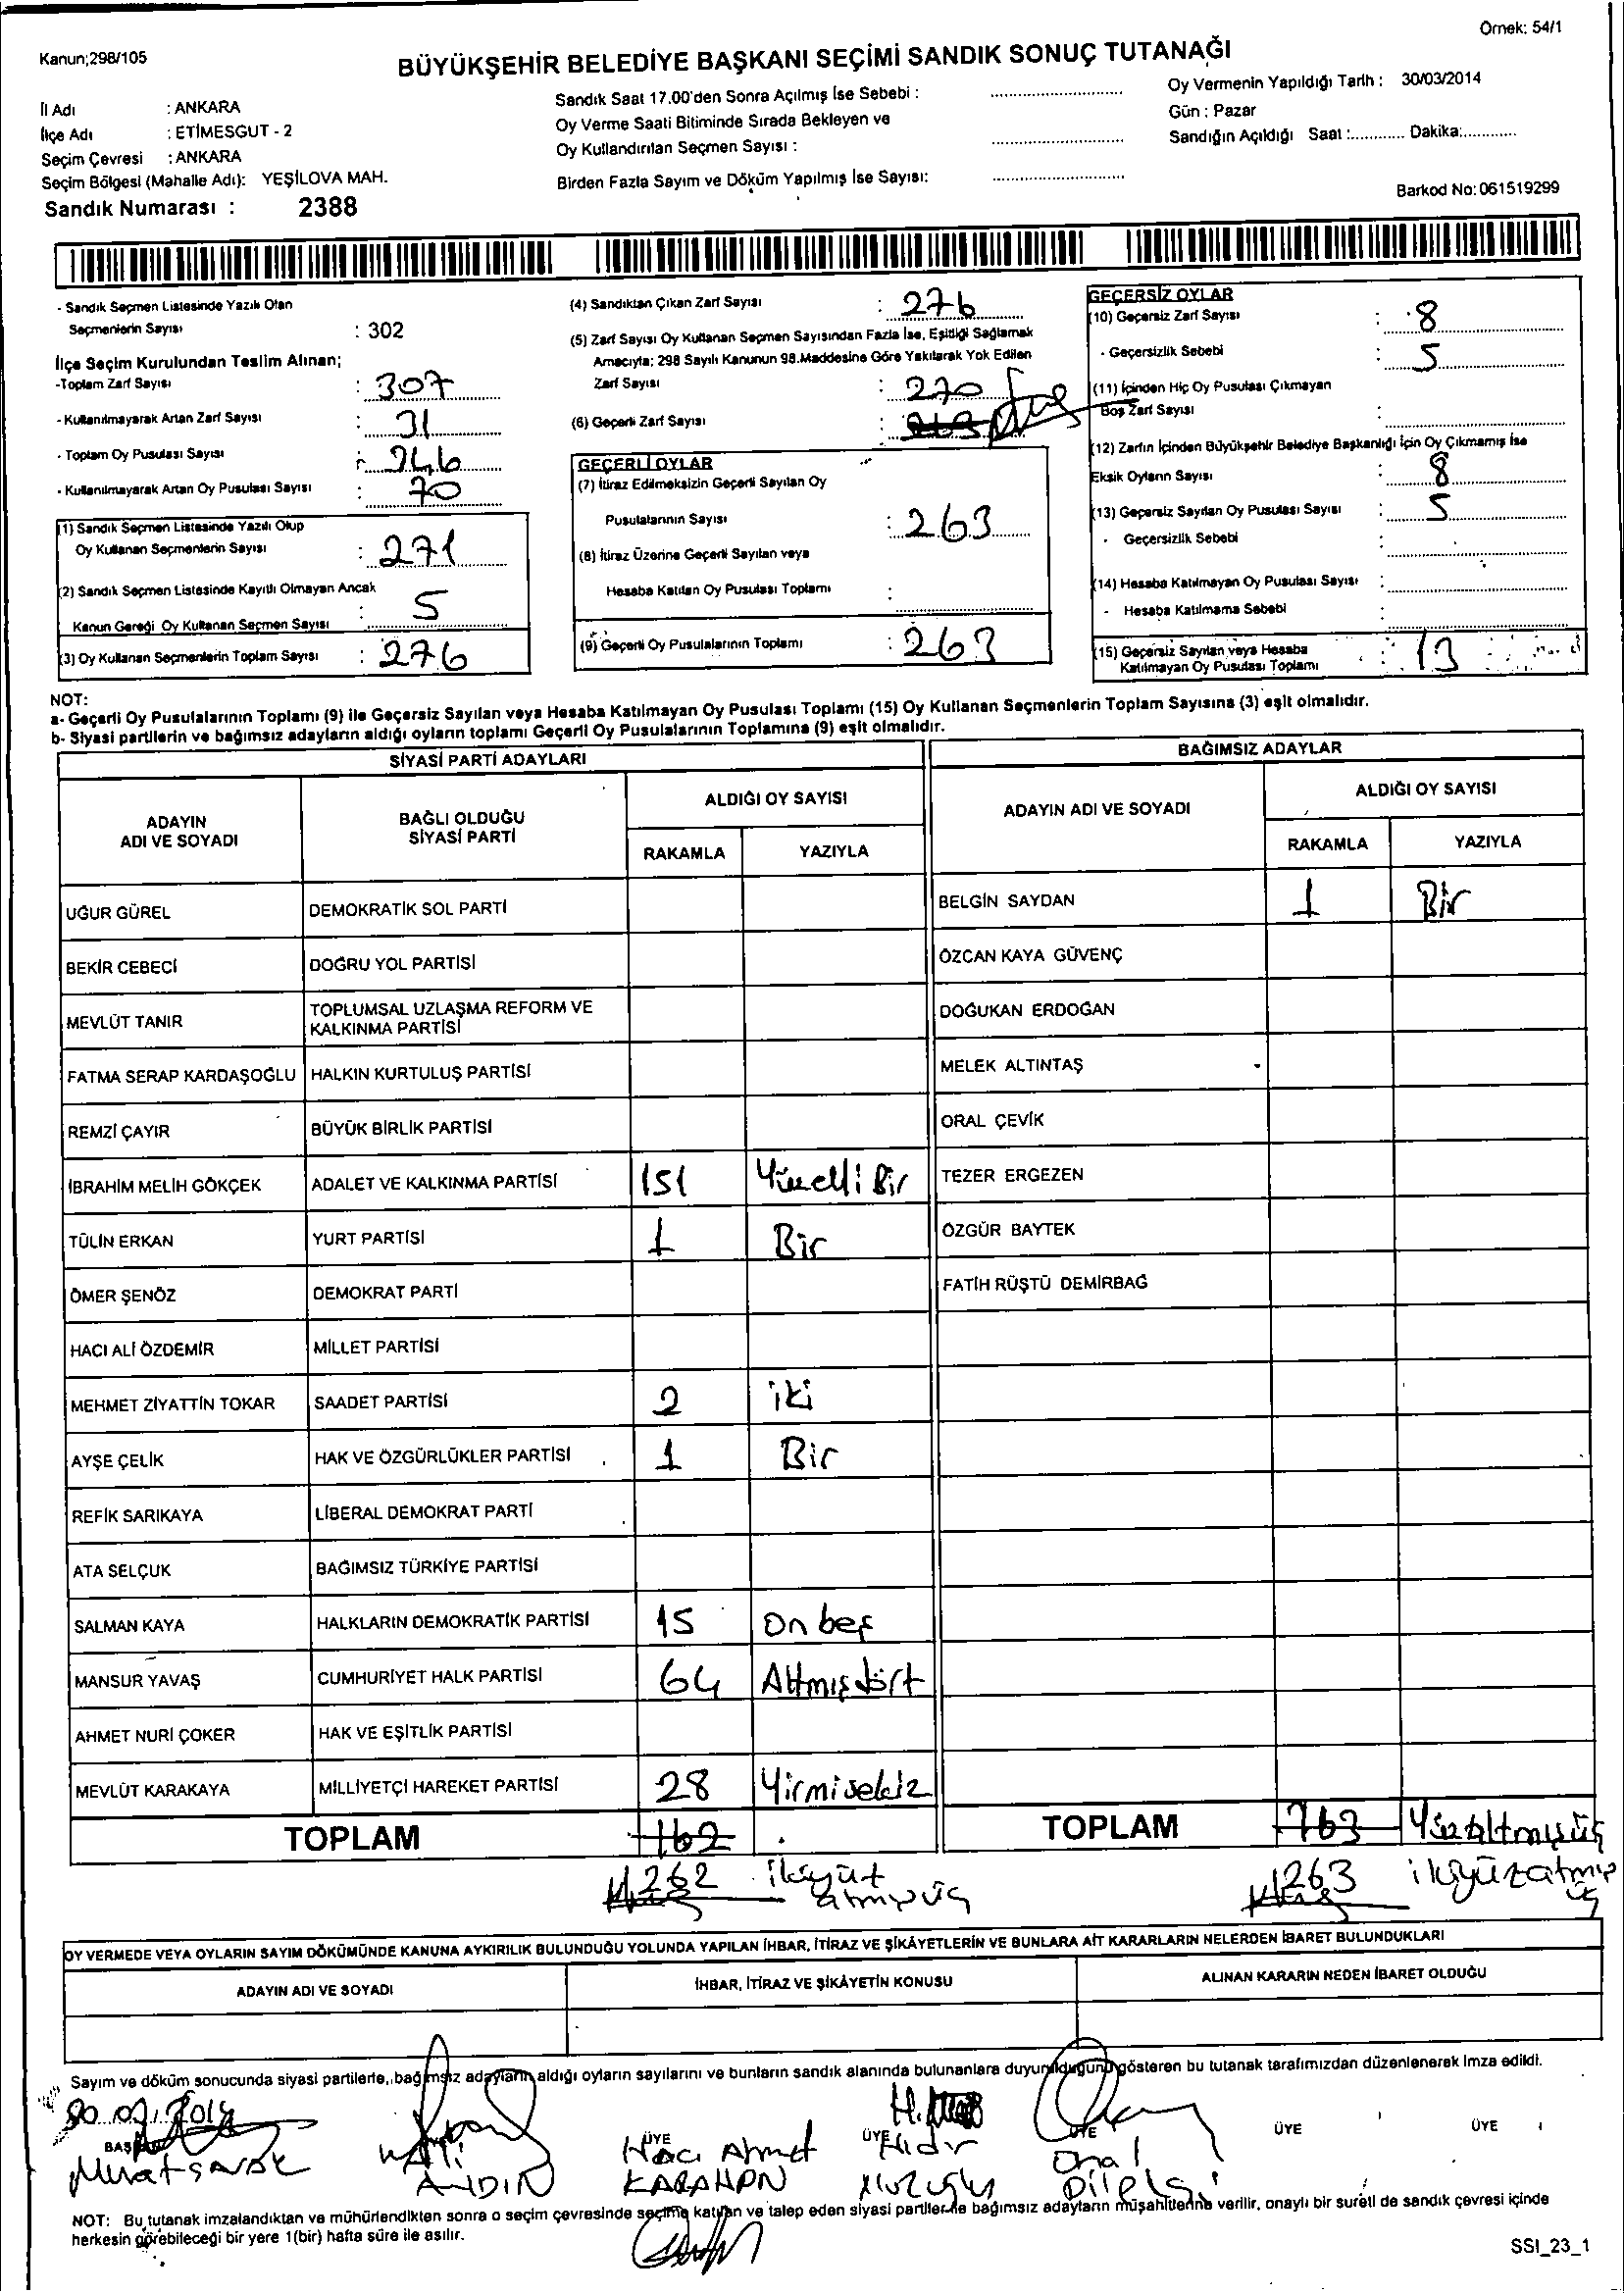 Örnek: 54/1
Kanun;298/105
BÜYÜKŞEHİR BELEDİYE BAŞKANI SEÇİMİ SANDIK SONUÇ TUTANAĞI
İl Adı : ANKARA
İlçe Adı : ETİMESGUT - 2
Seçim Çevresi : ANKARA
Seçim Bölgesi (Mahalle Adı): YEŞİLOVA MAH.
Sandık Numarası : 2388
Sandık Saat 17.00'den Sonra Açılmış İse Sebebi :
Oy Verme Saati Bitiminde Sırada Bekleyen ve
Oy Kullandırılan Seçmen Sayısı :
Birden Fazla Sayım ve Döküm Yapılmış İse Sayısı:
Oy Vermenin Yapıldığı Tarih : 30/03/2014
Gün : Pazar
Sandığın Açıldığı Saat :............ Dakika:............
Barkod No: 061519299
- Sandık Seçmen Listesinde Yazılı Olan
Seçmenlerin Sayısı : 302
İlçe Seçim Kurulundan Teslim Alınan;
-Toplam Zarf Sayısı : 307
- Kullanılmayarak Artan Zarf Sayısı : 31
- Toplam Oy Pusulası Sayısı : 346
- Kullanılmayarak Artan Oy Pusulası Sayısı : 70
(1) Sandık Seçmen Listesinde Yazılı Olup
Oy Kullanan Seçmenlerin Sayısı : 271
(2) Sandık Seçmen Listesinde Kayıtlı Olmayan Ancak
Kanun Gereği Oy Kullanan Seçmen Sayısı : 5
(3) Oy Kullanan Seçmenlerin Toplam Sayısı : 276
(4) Sandıktan Çıkan Zarf Sayısı : 276
(5) Zarf Sayısı Oy Kullanan Seçmen Sayısından Fazla İse, Eşitliği Sağlamak
Amacıyla; 298 Sayılı Kanunun 98.Maddesine Göre Yakılarak Yok Edilen
Zarf Sayısı : 270
(6) Geçerli Zarf Sayısı :
GEÇERLİ OYLAR
(7) İtiraz Edilmeksizin Geçerli Sayılan Oy
Pusulalarının Sayısı : 263
(8) İtiraz Üzerine Geçerli Sayılan veya
Hesaba Katılan Oy Pusulası Toplamı :
(9) Geçerli Oy Pusulalarının Toplamı : 263
GEÇERSİZ OYLAR
(10) Geçersiz Zarf Sayısı : 8
- Geçersizlik Sebebi : 5
(11) İçinden Hiç Oy Pusulası Çıkmayan
Boş Zarf Sayısı :
(12) Zarfın İçinden Büyükşehir Belediye Başkanlığı İçin Oy Çıkmamış İse
Eksik Oyların Sayısı : 8
(13) Geçersiz Sayılan Oy Pusulası Sayısı : 5
- Geçersizlik Sebebi :
(14) Hesaba Katılmayan Oy Pusulası Sayısı :
- Hesaba Katılmama Sebebi :
(15) Geçersiz Sayılan veya Hesaba
Katılmayan Oy Pusulası Toplamı : 13
NOT:
a- Geçerli Oy Pusulalarının Toplamı (9) ile Geçersiz Sayılan veya Hesaba Katılmayan Oy Pusulası Toplamı (15) Oy Kullanan Seçmenlerin Toplam Sayısına (3) eşit olmalıdır.
b- Siyasi partilerin ve bağımsız adayların aldığı oyların toplamı Geçerli Oy Pusulalarının Toplamına (9) eşit olmalıdır.
SİYASİ PARTİ ADAYLARI
ADAYIN ADI VE SOYADI
BAĞLI OLDUĞU SİYASİ PARTİ
ALDIĞI OY SAYISI
RAKAMLA YAZIYLA
UĞUR GÜREL DEMOKRATİK SOL PARTİ
BEKİR CEBECİ DOĞRU YOL PARTİSİ
MEVLÜT TANIR TOPLUMSAL UZLAŞMA REFORM VE KALKINMA PARTİSİ
FATMA SERAP KARDAŞOĞLU HALKIN KURTULUŞ PARTİSİ
REMZİ ÇAYIR BÜYÜK BİRLİK PARTİSİ
İBRAHİM MELİH GÖKÇEK ADALET VE KALKINMA PARTİSİ 151 Yüzelli Bir
TÜLİN ERKAN YURT PARTİSİ 1 Bir
ÖMER ŞENÖZ DEMOKRAT PARTİ
HACI ALİ ÖZDEMİR MİLLET PARTİSİ
MEHMET ZİYATTİN TOKAR SAADET PARTİSİ 2 iki
AYŞE ÇELİK HAK VE ÖZGÜRLÜKLER PARTİSİ 1 Bir
REFİK SARIKAYA LİBERAL DEMOKRAT PARTİ
ATA SELÇUK BAĞIMSIZ TÜRKİYE PARTİSİ
SALMAN KAYA HALKLARIN DEMOKRATİK PARTİSİ 15 On beş
MANSUR YAVAŞ CUMHURİYET HALK PARTİSİ 64 Altmışdört
AHMET NURİ ÇOKER HAK VE EŞİTLİK PARTİSİ
MEVLÜT KARAKAYA MİLLİYETÇİ HAREKET PARTİSİ 28 Yirmisekiz
TOPLAM 162
262 ikiyüt atmışüç
BAĞIMSIZ ADAYLAR
ADAYIN ADI VE SOYADI
ALDIĞI OY SAYISI
RAKAMLA YAZIYLA
BELGİN SAYDAN 1 Bir
ÖZCAN KAYA GÜVENÇ
DOĞUKAN ERDOĞAN
MELEK ALTINTAŞ
ORAL ÇEVİK
TEZER ERGEZEN
ÖZGÜR BAYTEK
FATİH RÜŞTÜ DEMİRBAĞ
TOPLAM 163 Yüzaltmışüç
263 ikiyüzatmış üç
OY VERMEDE VEYA OYLARIN SAYIM DÖKÜMÜNDE KANUNA AYKIRILIK BULUNDUĞU YOLUNDA YAPILAN İHBAR, İTİRAZ VE ŞİKÂYETLERİN VE BUNLARA AİT KARARLARIN NELERDEN İBARET BULUNDUKLARI
ADAYIN ADI VE SOYADI
İHBAR, İTİRAZ VE ŞİKÂYETİN KONUSU
ALINAN KARARIN NEDEN İBARET OLDUĞU
Sayım ve döküm sonucunda siyasi partilerle, bağımsız adayların aldığı oyların sayılarını ve bunların sandık alanında bulunanlara duyurulduğunu gösteren bu tutanak tarafımızdan düzenlenerek imza edildi.
30.03.2014
ÜYE ÜYE ÜYE ÜYE ÜYE
Murat
Ali AYDIN
Hacı Ahmet KARAHAN
Hıdır
Onal
NOT: Bu tutanak imzalandıktan ve mühürlendikten sonra o seçim çevresinde seçime katılan ve talep eden siyasi partiler ile bağımsız adayların müşahitlerine verilir, onaylı bir sureti de sandık çevresi içinde
herkesin görebileceği bir yere 1(bir) hafta süre ile asılır.
SSI_23_1